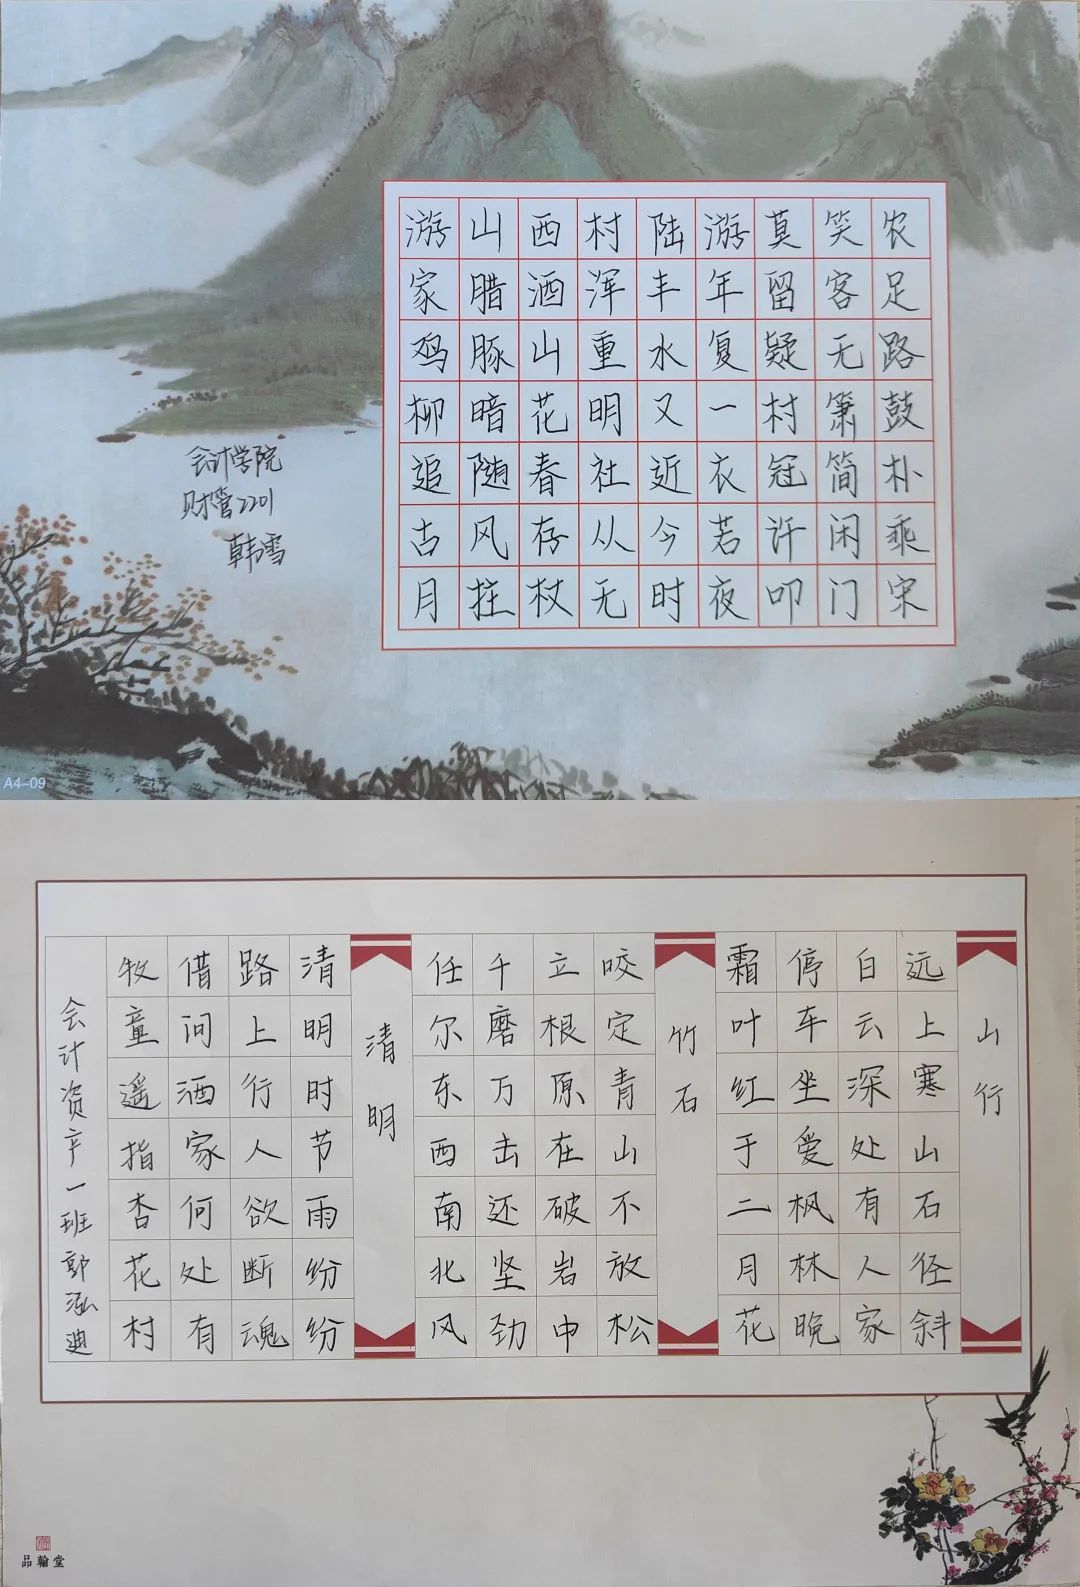 游山西村陆游莫笑农
家腊酒浑丰年留客足
鸡豚山重水复疑无路
柳暗花明又一村箫鼓
追随春社近衣冠简朴
古风存从今若许闲乘
月拄杖无时夜叩门宋
会计学院
财管2201
韩雪
A4-09
山行
远上寒山石径斜
白云深处有人家
停车坐爱枫林晚
霜叶红于二月花
竹石
咬定青山不放松
立根原在破岩中
千磨万击还坚劲
任尔东西南北风
清明
清明时节雨纷纷
路上行人欲断魂
借问酒家何处有
牧童遥指杏花村
会计资产一班郭泓迪
品翰堂